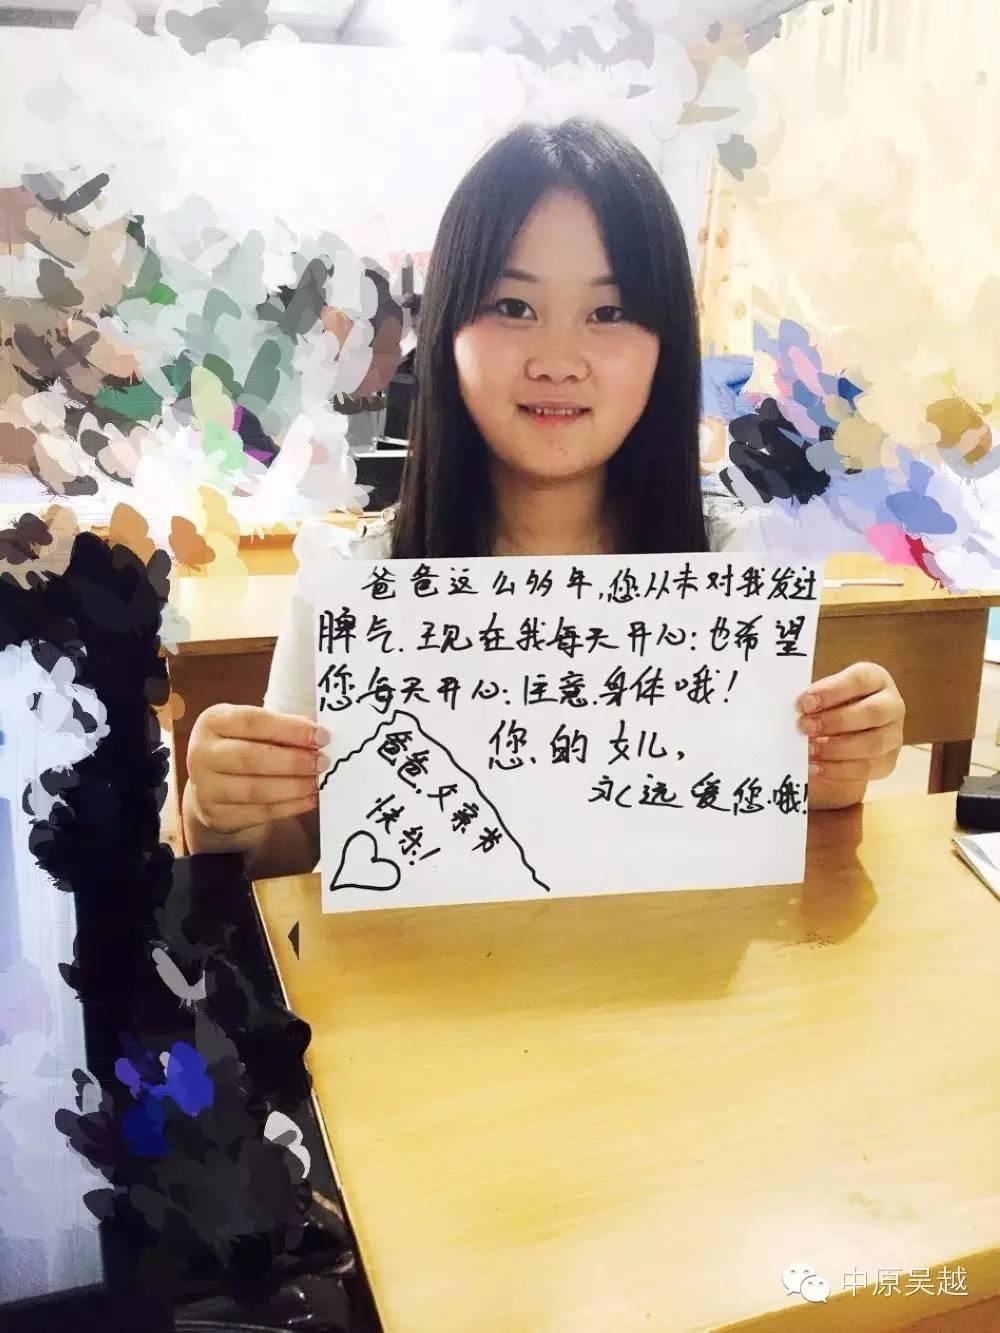 爸爸这么多年,您从未对我发过
脾气.现在我每天开心:也希望
您每天开心:注意.身体哦!
您.的女儿,
永远爱您.哦!
爸爸,父亲节
快乐!
中原吴越